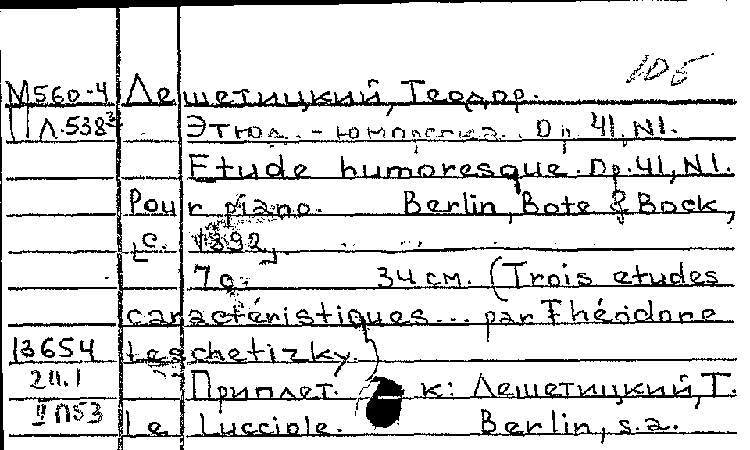 105
М560-4 Лешетицкий, Теодор.
Л.538² Этюд-юмореска. Op. 41, N1.
Etude humoresque. Op. 41, N1.
Pour piano. Berlin, Bote & Bock,
[c. 1892].
7 c. 34 см. (Trois etudes
caractéristiques... par Théodore
13654 Leschetizky.)
Приплет. к: Лешетицкий, Т.
II П53 Le Lucciole. Berlin, s.a.